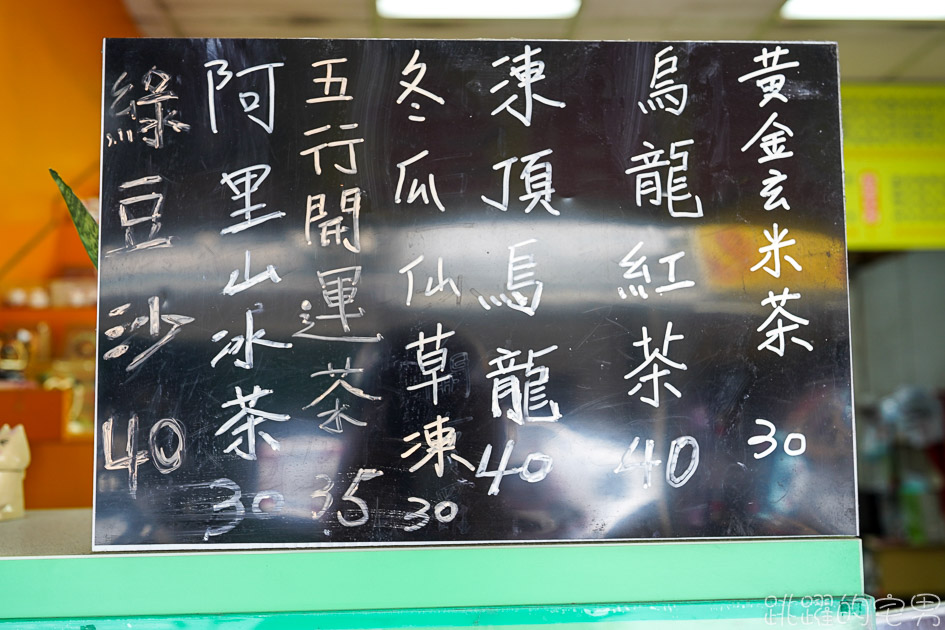 黃金玄米茶 30
烏龍紅茶 40
凍頂烏龍 40
冬瓜仙草凍 30
五行開運茶 35
阿里山冰茶 30
綠豆沙 40
跳躍的宅男